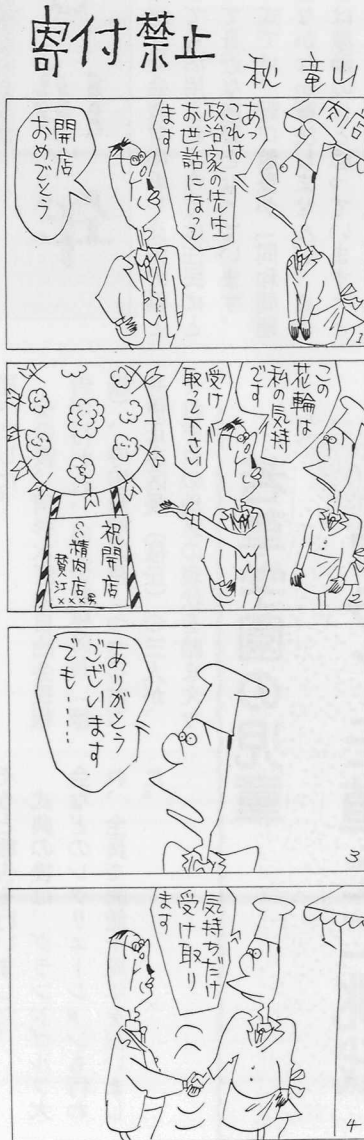 寄付禁止
秋 竜山
肉店
あっ
これは
政治家の先生
お世話になって
ます
開店
おめでとう
1
この
花輪は
私の気持
です
受け
取って下さい
祝開店
○○精肉店
賛江
×××男
2
ありがとう
ございます
でも……
3
気持ちだけ
受け取り
ます
4